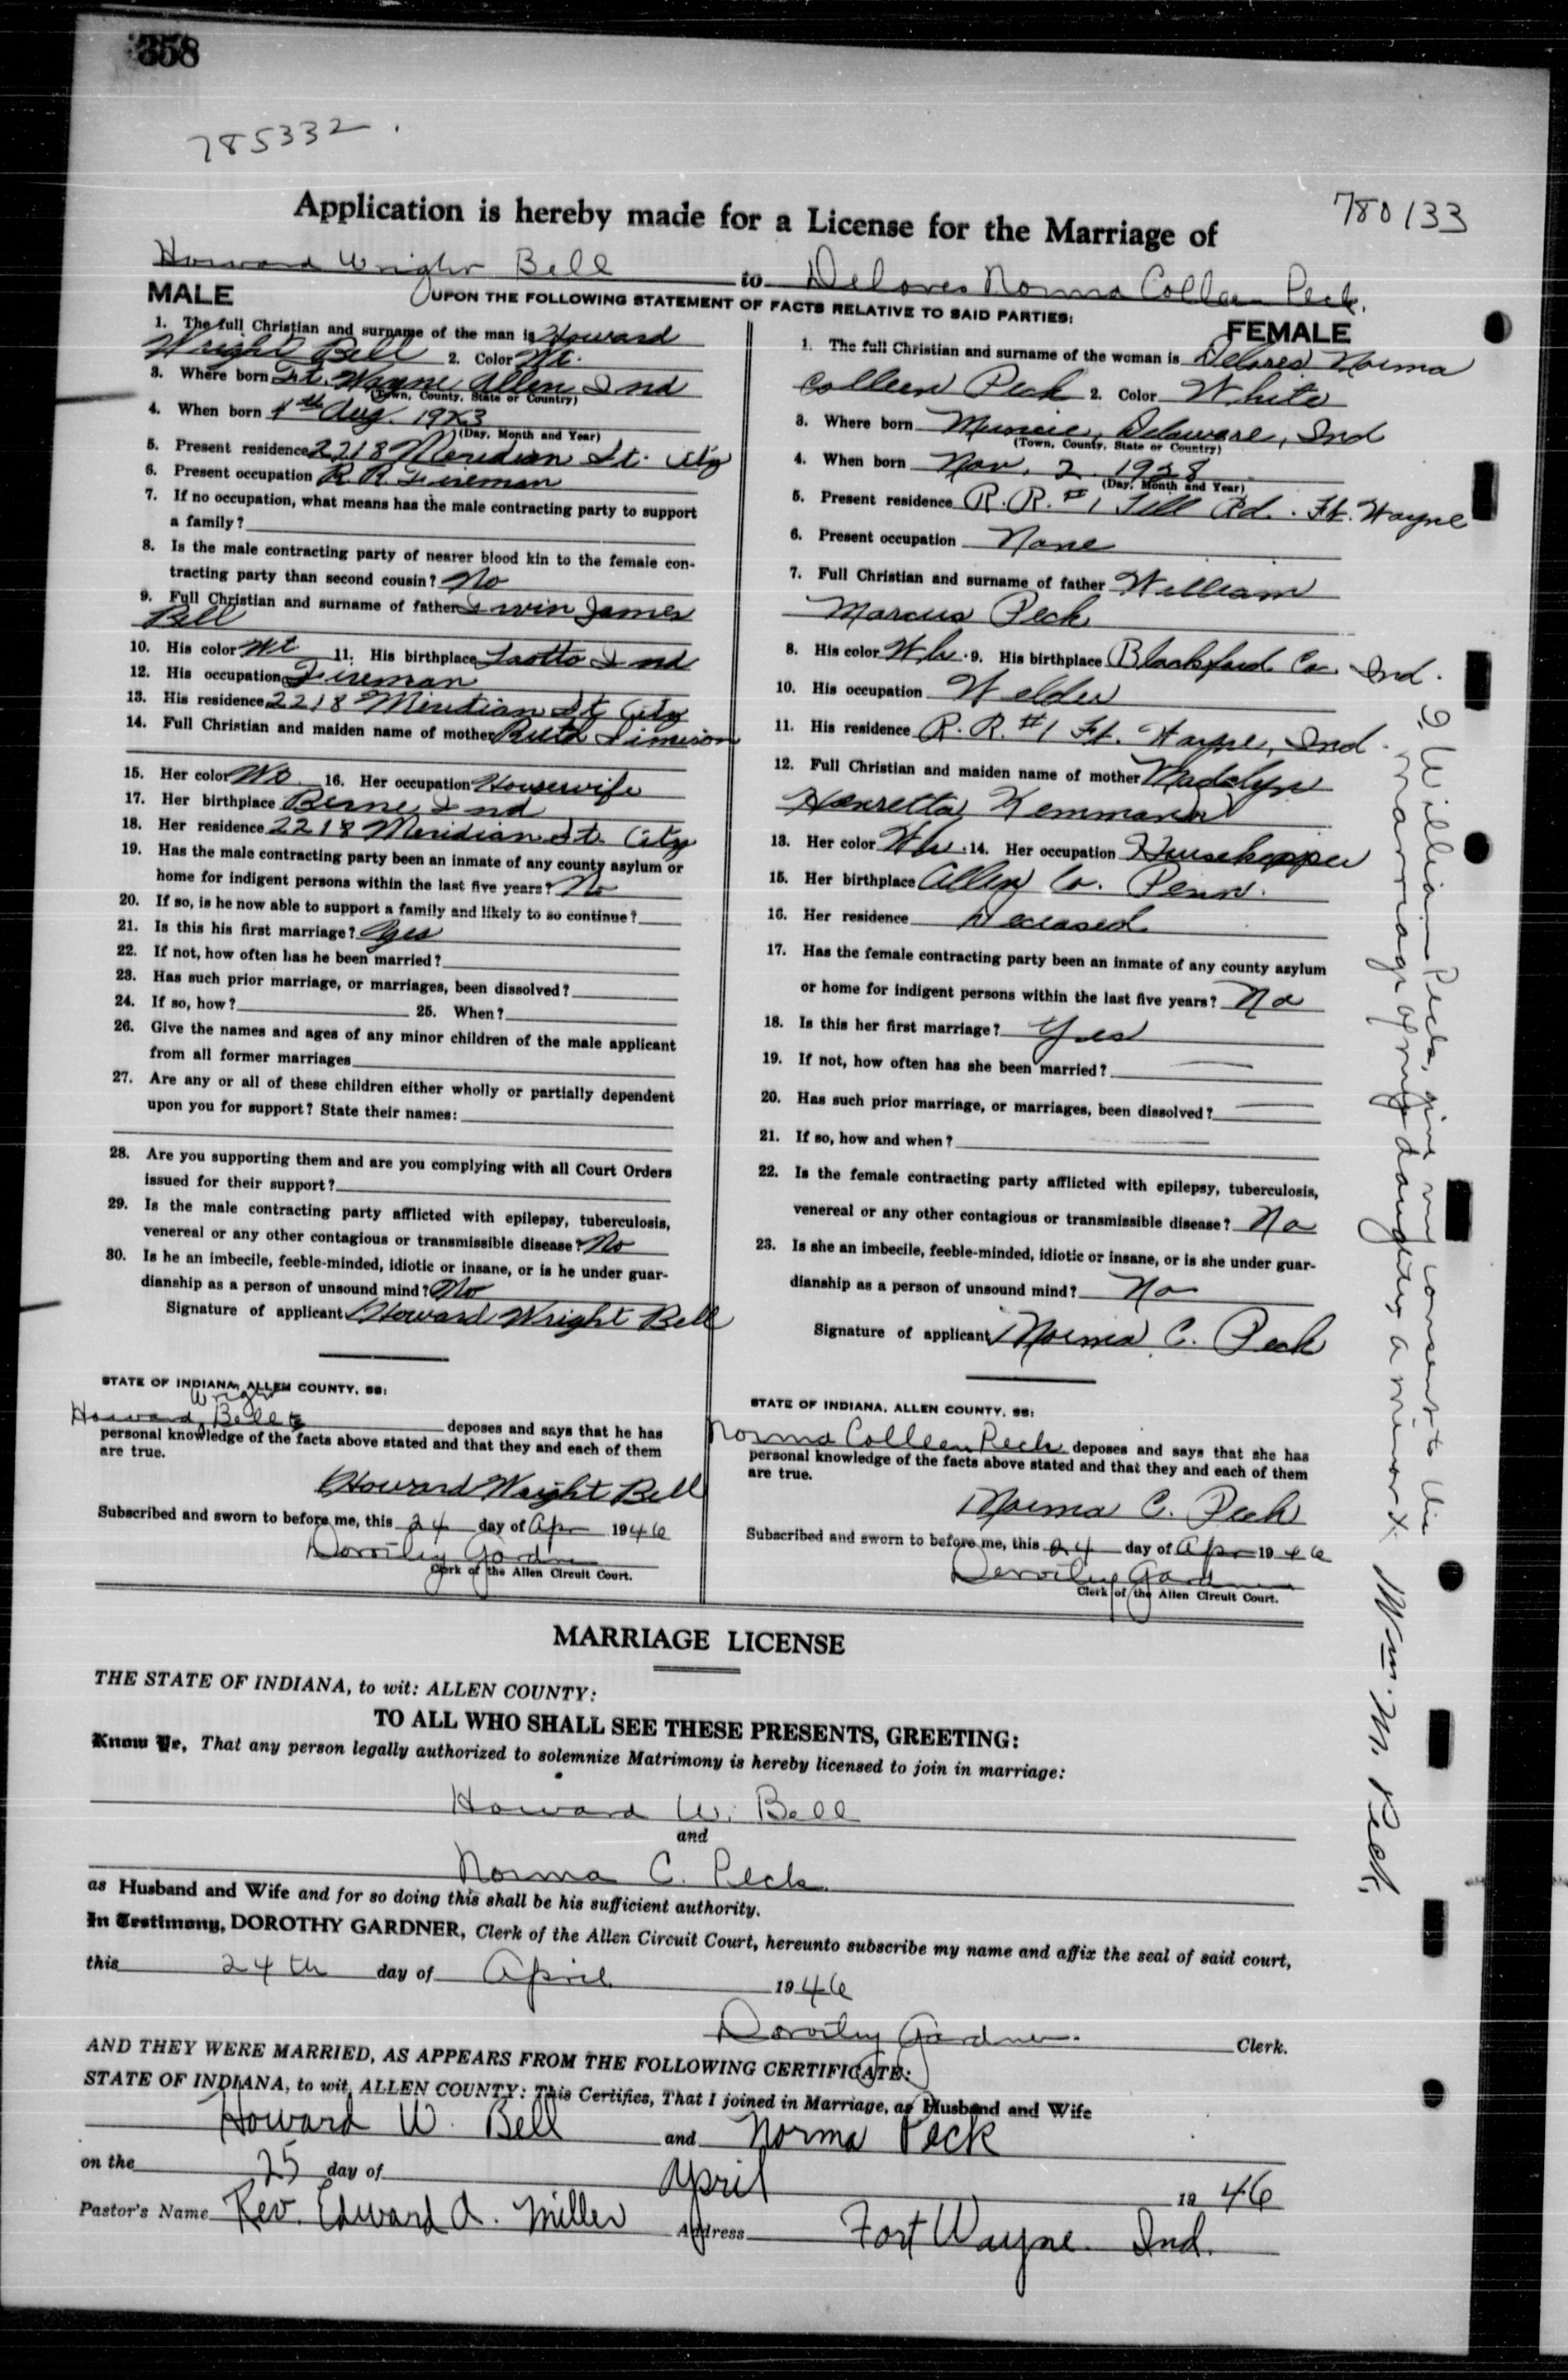 358
785332
780133
Application is hereby made for a License for the Marriage of
Howard Wright Bell to Delores Norma Colleen Peck.
UPON THE FOLLOWING STATEMENT OF FACTS RELATIVE TO SAID PARTIES:
MALE
1. The full Christian and surname of the man is Howard
Wright Bell 2. Color Wt.
3. Where born Ft. Wayne Allen Ind
(Town, County, State or Country)
4. When born 1th Aug. 1923
(Day, Month and Year)
5. Present residence 2218 Meridian St. City
6. Present occupation R. R. Fireman
7. If no occupation, what means has the male contracting party to support
a family?
8. Is the male contracting party of nearer blood kin to the female con-
tracting party than second cousin? No
9. Full Christian and surname of father Irwin James
Bell
10. His color Wt 11. His birthplace Laotto Ind
12. His occupation Fireman
13. His residence 2218 Meridian St City
14. Full Christian and maiden name of mother Ruth
15. Her color 16. Her occupation Housewife
17. Her birthplace Berne Ind
18. Her residence 2218 Meridian St. City
19. Has the male contracting party been an inmate of any county asylum or
home for indigent persons within the last five years? No
20. If so, is he now able to support a family and likely to so continue?
21. Is this his first marriage? Yes
22. If not, how often has he been married?
23. Has such prior marriage, or marriages, been dissolved?
24. If so, how? 25. When?
26. Give the names and ages of any minor children of the male applicant
from all former marriages
27. Are any or all of these children either wholly or partially dependent
upon you for support? State their names:
28. Are you supporting them and are you complying with all Court Orders
issued for their support?
29. Is the male contracting party afflicted with epilepsy, tuberculosis,
venereal or any other contagious or transmissible disease? No
30. Is he an imbecile, feeble-minded, idiotic or insane, or is he under guar-
dianship as a person of unsound mind? No
Signature of applicant Howard Wright Bell
STATE OF INDIANA, ALLEN COUNTY, SS:
Wright
Howard Bell deposes and says that he has
personal knowledge of the facts above stated and that they and each of them
are true.
Howard Wright Bell
Subscribed and sworn to before me, this 24 day of Apr 1946
Dorothy Gardner
Clerk of the Allen Circuit Court.
FEMALE
1. The full Christian and surname of the woman is Delores Norma
Colleen Peck 2. Color White
3. Where born Muncie, Delaware, Ind
(Town, County, State or Country)
4. When born Nov. 2 1928
(Day, Month and Year)
5. Present residence R. R. #1 Till Rd. Ft. Wayne
6. Present occupation None
7. Full Christian and surname of father William
Marcus Peck
8. His color Wh. 9. His birthplace Blackford Co. Ind.
10. His occupation Welder
11. His residence R. R. #1 Ft. Wayne, Ind.
12. Full Christian and maiden name of mother Madelyn
Henretta
13. Her color Wh. 14. Her occupation Housekeeper
15. Her birthplace Allen Co. Penn.
16. Her residence Deceased
17. Has the female contracting party been an inmate of any county asylum
or home for indigent persons within the last five years? No
18. Is this her first marriage? Yes
19. If not, how often has she been married?
20. Has such prior marriage, or marriages, been dissolved?
21. If so, how and when?
22. Is the female contracting party afflicted with epilepsy, tuberculosis,
venereal or any other contagious or transmissible disease? No
23. Is she an imbecile, feeble-minded, idiotic or insane, or is she under guar-
dianship as a person of unsound mind? No
Signature of applicant Norma C. Peck
STATE OF INDIANA, ALLEN COUNTY, SS:
Norma Colleen Peck deposes and says that she has
personal knowledge of the facts above stated and that they and each of them
are true.
Norma C. Peck
Subscribed and sworn to before me, this 24 day of Apr 1946
Dorothy Gardner
Clerk of the Allen Circuit Court.
I, William Peck, give my consent to this
marriage of my daughter, a minor
Wm. M. Peck
MARRIAGE LICENSE
THE STATE OF INDIANA, to wit: ALLEN COUNTY:
TO ALL WHO SHALL SEE THESE PRESENTS, GREETING:
Know Ye, That any person legally authorized to solemnize Matrimony is hereby licensed to join in marriage:
Howard W. Bell
and
Norma C. Peck
as Husband and Wife and for so doing this shall be his sufficient authority.
In Testimony, DOROTHY GARDNER, Clerk of the Allen Circuit Court, hereunto subscribe my name and affix the seal of said court,
this 24th day of April 1946
Dorothy Gardner Clerk.
AND THEY WERE MARRIED, AS APPEARS FROM THE FOLLOWING CERTIFICATE:
STATE OF INDIANA, to wit, ALLEN COUNTY: This Certifies, That I joined in Marriage, as Husband and Wife
Howard W. Bell and Norma Peck
on the 25 day of April 1946
Pastor's Name Rev. Edward A. Miller Address Fort Wayne. Ind.